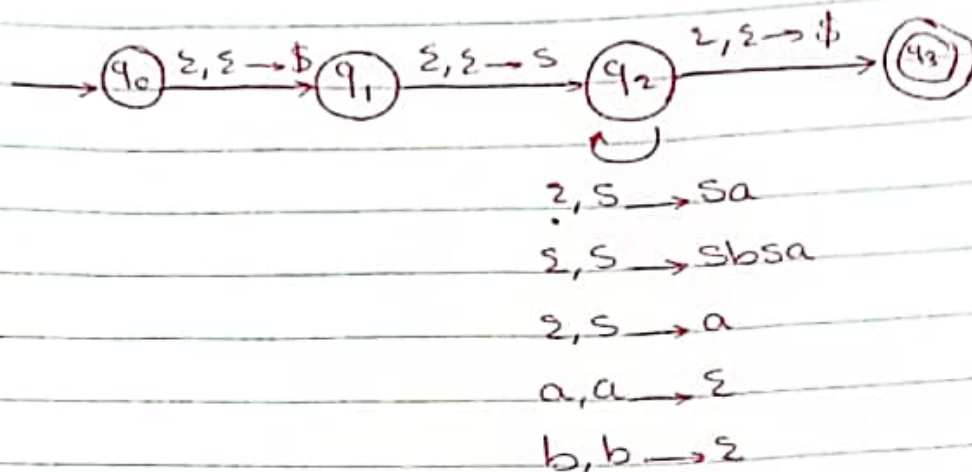 q₀ ε, ε → $ q₁ ε, ε → S q₂ ε, ε → $ q₃
ε, S → Sa
ε, S → SbSa
ε, S → a
a, a → ε
b, b → ε